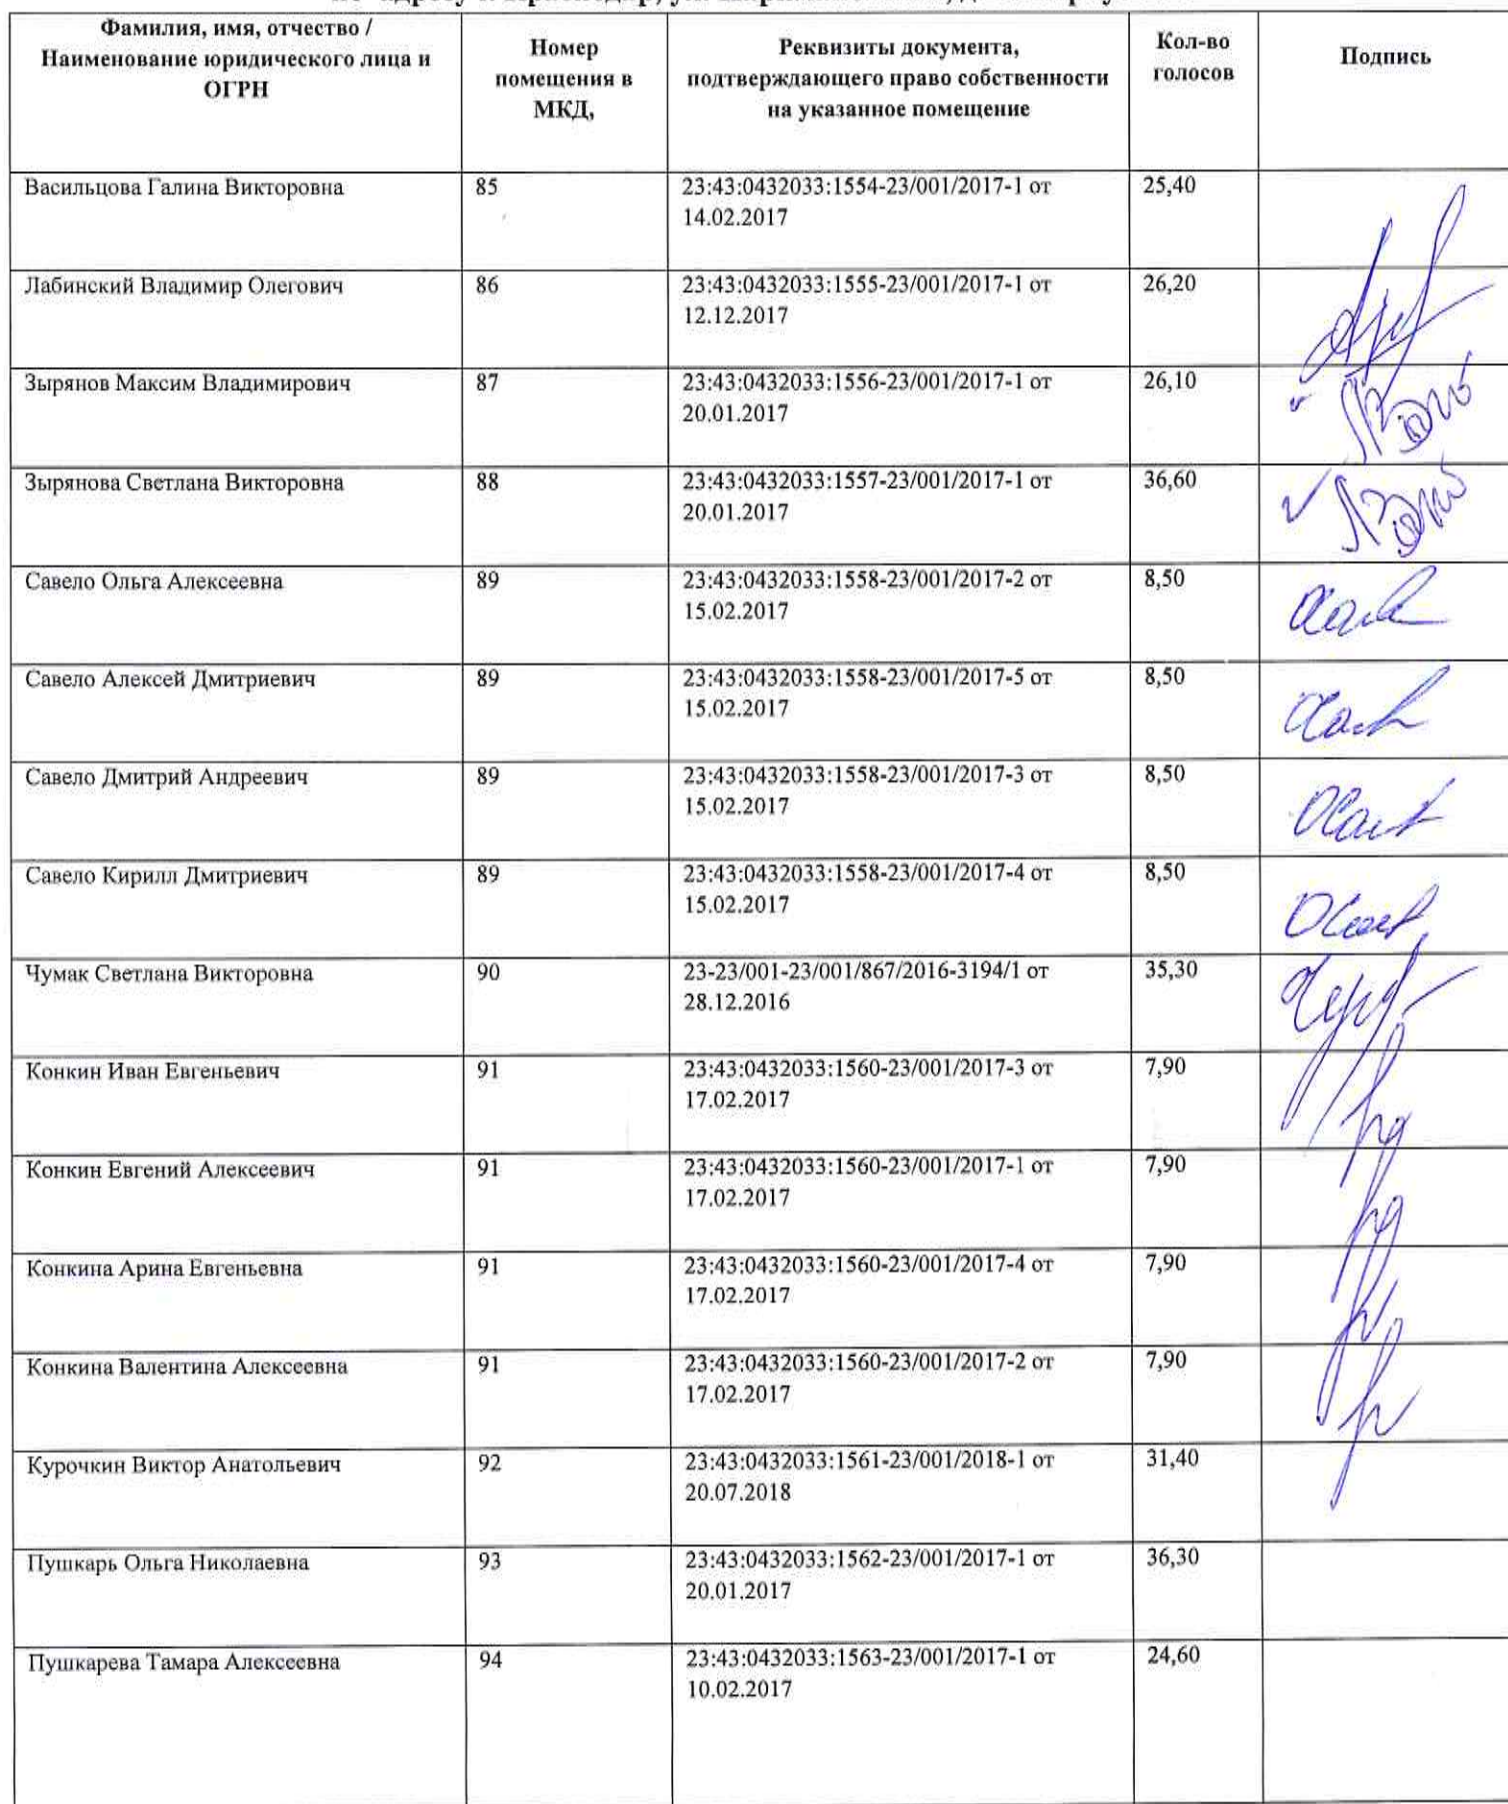 Фамилия, имя, отчество /
Наименование юридического лица и
ОГРН
Номер
помещения в
МКД,
Реквизиты документа,
подтверждающего право собственности
на указанное помещение
Кол-во
голосов
Подпись
Васильцова Галина Викторовна
85
23:43:0432033:1554-23/001/2017-1 от
14.02.2017
25,40
Лабинский Владимир Олегович
86
23:43:0432033:1555-23/001/2017-1 от
12.12.2017
26,20
Зырянов Максим Владимирович
87
23:43:0432033:1556-23/001/2017-1 от
20.01.2017
26,10
Зырянова Светлана Викторовна
88
23:43:0432033:1557-23/001/2017-1 от
20.01.2017
36,60
Савело Ольга Алексеевна
89
23:43:0432033:1558-23/001/2017-2 от
15.02.2017
8,50
Савело Алексей Дмитриевич
89
23:43:0432033:1558-23/001/2017-5 от
15.02.2017
8,50
Савело Дмитрий Андреевич
89
23:43:0432033:1558-23/001/2017-3 от
15.02.2017
8,50
Савело Кирилл Дмитриевич
89
23:43:0432033:1558-23/001/2017-4 от
15.02.2017
8,50
Чумак Светлана Викторовна
90
23-23/001-23/001/867/2016-3194/1 от
28.12.2016
35,30
Конкин Иван Евгеньевич
91
23:43:0432033:1560-23/001/2017-3 от
17.02.2017
7,90
Конкин Евгений Алексеевич
91
23:43:0432033:1560-23/001/2017-1 от
17.02.2017
7,90
Конкина Арина Евгеньевна
91
23:43:0432033:1560-23/001/2017-4 от
17.02.2017
7,90
Конкина Валентина Алексеевна
91
23:43:0432033:1560-23/001/2017-2 от
17.02.2017
7,90
Курочкин Виктор Анатольевич
92
23:43:0432033:1561-23/001/2018-1 от
20.07.2018
31,40
Пушкарь Ольга Николаевна
93
23:43:0432033:1562-23/001/2017-1 от
20.01.2017
36,30
Пушкарева Тамара Алексеевна
94
23:43:0432033:1563-23/001/2017-1 от
10.02.2017
24,60